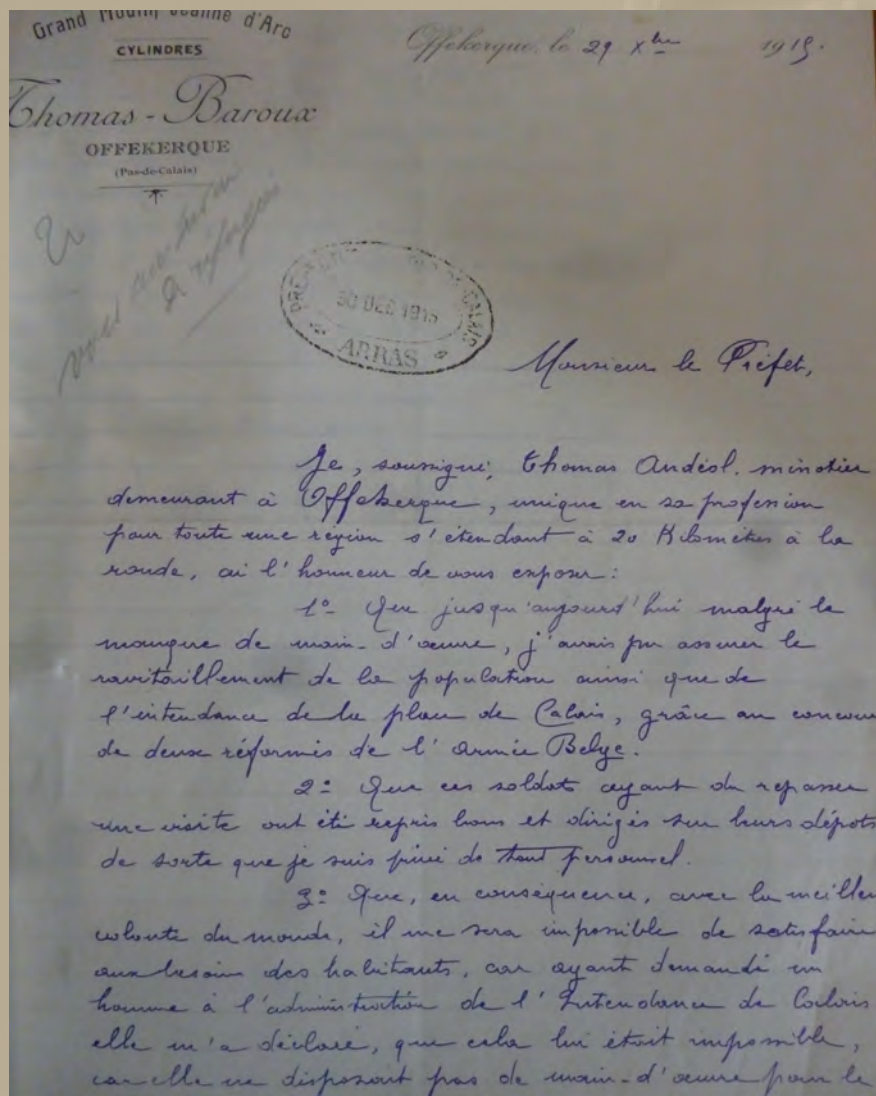 Grand Moulin Jeanne d'Arc
CYLINDRES
Thomas-Baroux
OFFEKERQUE
(Pas-de-Calais)
Offekerque, le 29 Xbre 1915.
30 DEC 1915
ARRAS
Monsieur le Préfet,
Je, soussigné, Thomas Andéol. minotier
demeurant à Offekerque, unique en sa profession
pour toute une région s'étendant à 20 Kilomètres à la
ronde, ai l'honneur de vous exposer:
1º- Que jusqu'aujourd'hui malgré le
manque de main-d'œuvre, j'avais pu assurer le
ravitaillement de la population ainsi que de
l'intendance de la place de Calais, grâce au concour
de deux réformés de l'armée Belge.
2º- Que ces soldats ayant du repasser
une visite ont été repris bons et dirigés sur leurs dépots
de sorte que je suis privé de tout personnel.
3º- Que, en conséquence, avec la meilleu
volonté du monde, il me sera impossible de satisfaire
aux besoins des habitants, car ayant demandé un
homme à l'administration de l'Intendance de Calais
elle m'a déclaré, que cela lui était impossible,
car elle ne disposant pas de main-d'œuvre pour le